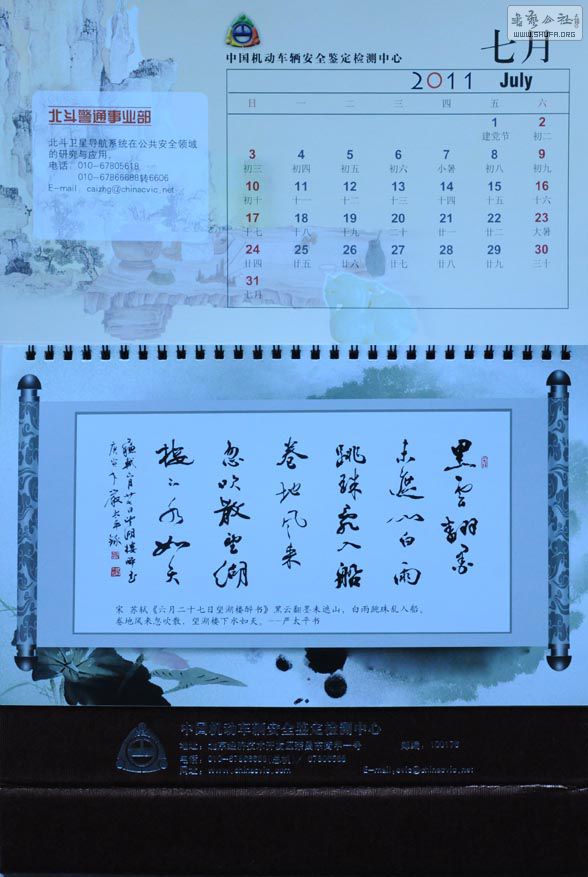 书艺公社
WWW.SHUFA.ORG
七月
中国机动车辆安全鉴定检测中心
2011 July
日 一 二 三 四 五 六
1 2
建党节 初二
3 4 5 6 7 8 9
初三 初四 初五 初六 小暑 初八 初九
10 11 12 13 14 15 16
初十 十一 十二 十三 十四 十五 十六
17 18 19 20 21 22 23
十七 十八 十九 二十 廿一 廿二 大暑
24 25 26 27 28 29 30
廿四 廿五 廿六 廿七 廿八 廿九 三十
31
七月
北斗警通事业部
北斗卫星导航系统在公共安全领域
的研究与应用。
电话：010-67805618
010-67866688转6606
E-mail：caizhg@chinacvic.net
黑云翻墨
未遮山白雨
跳珠乱入船
卷地风来
忽吹散望湖
楼下水如天
宋 苏轼《六月二十七日望湖楼醉书》黑云翻墨未遮山，白雨跳珠乱入船。
卷地风来忽吹散，望湖楼下水如天。---严太平书
中国机动车辆安全鉴定检测中心